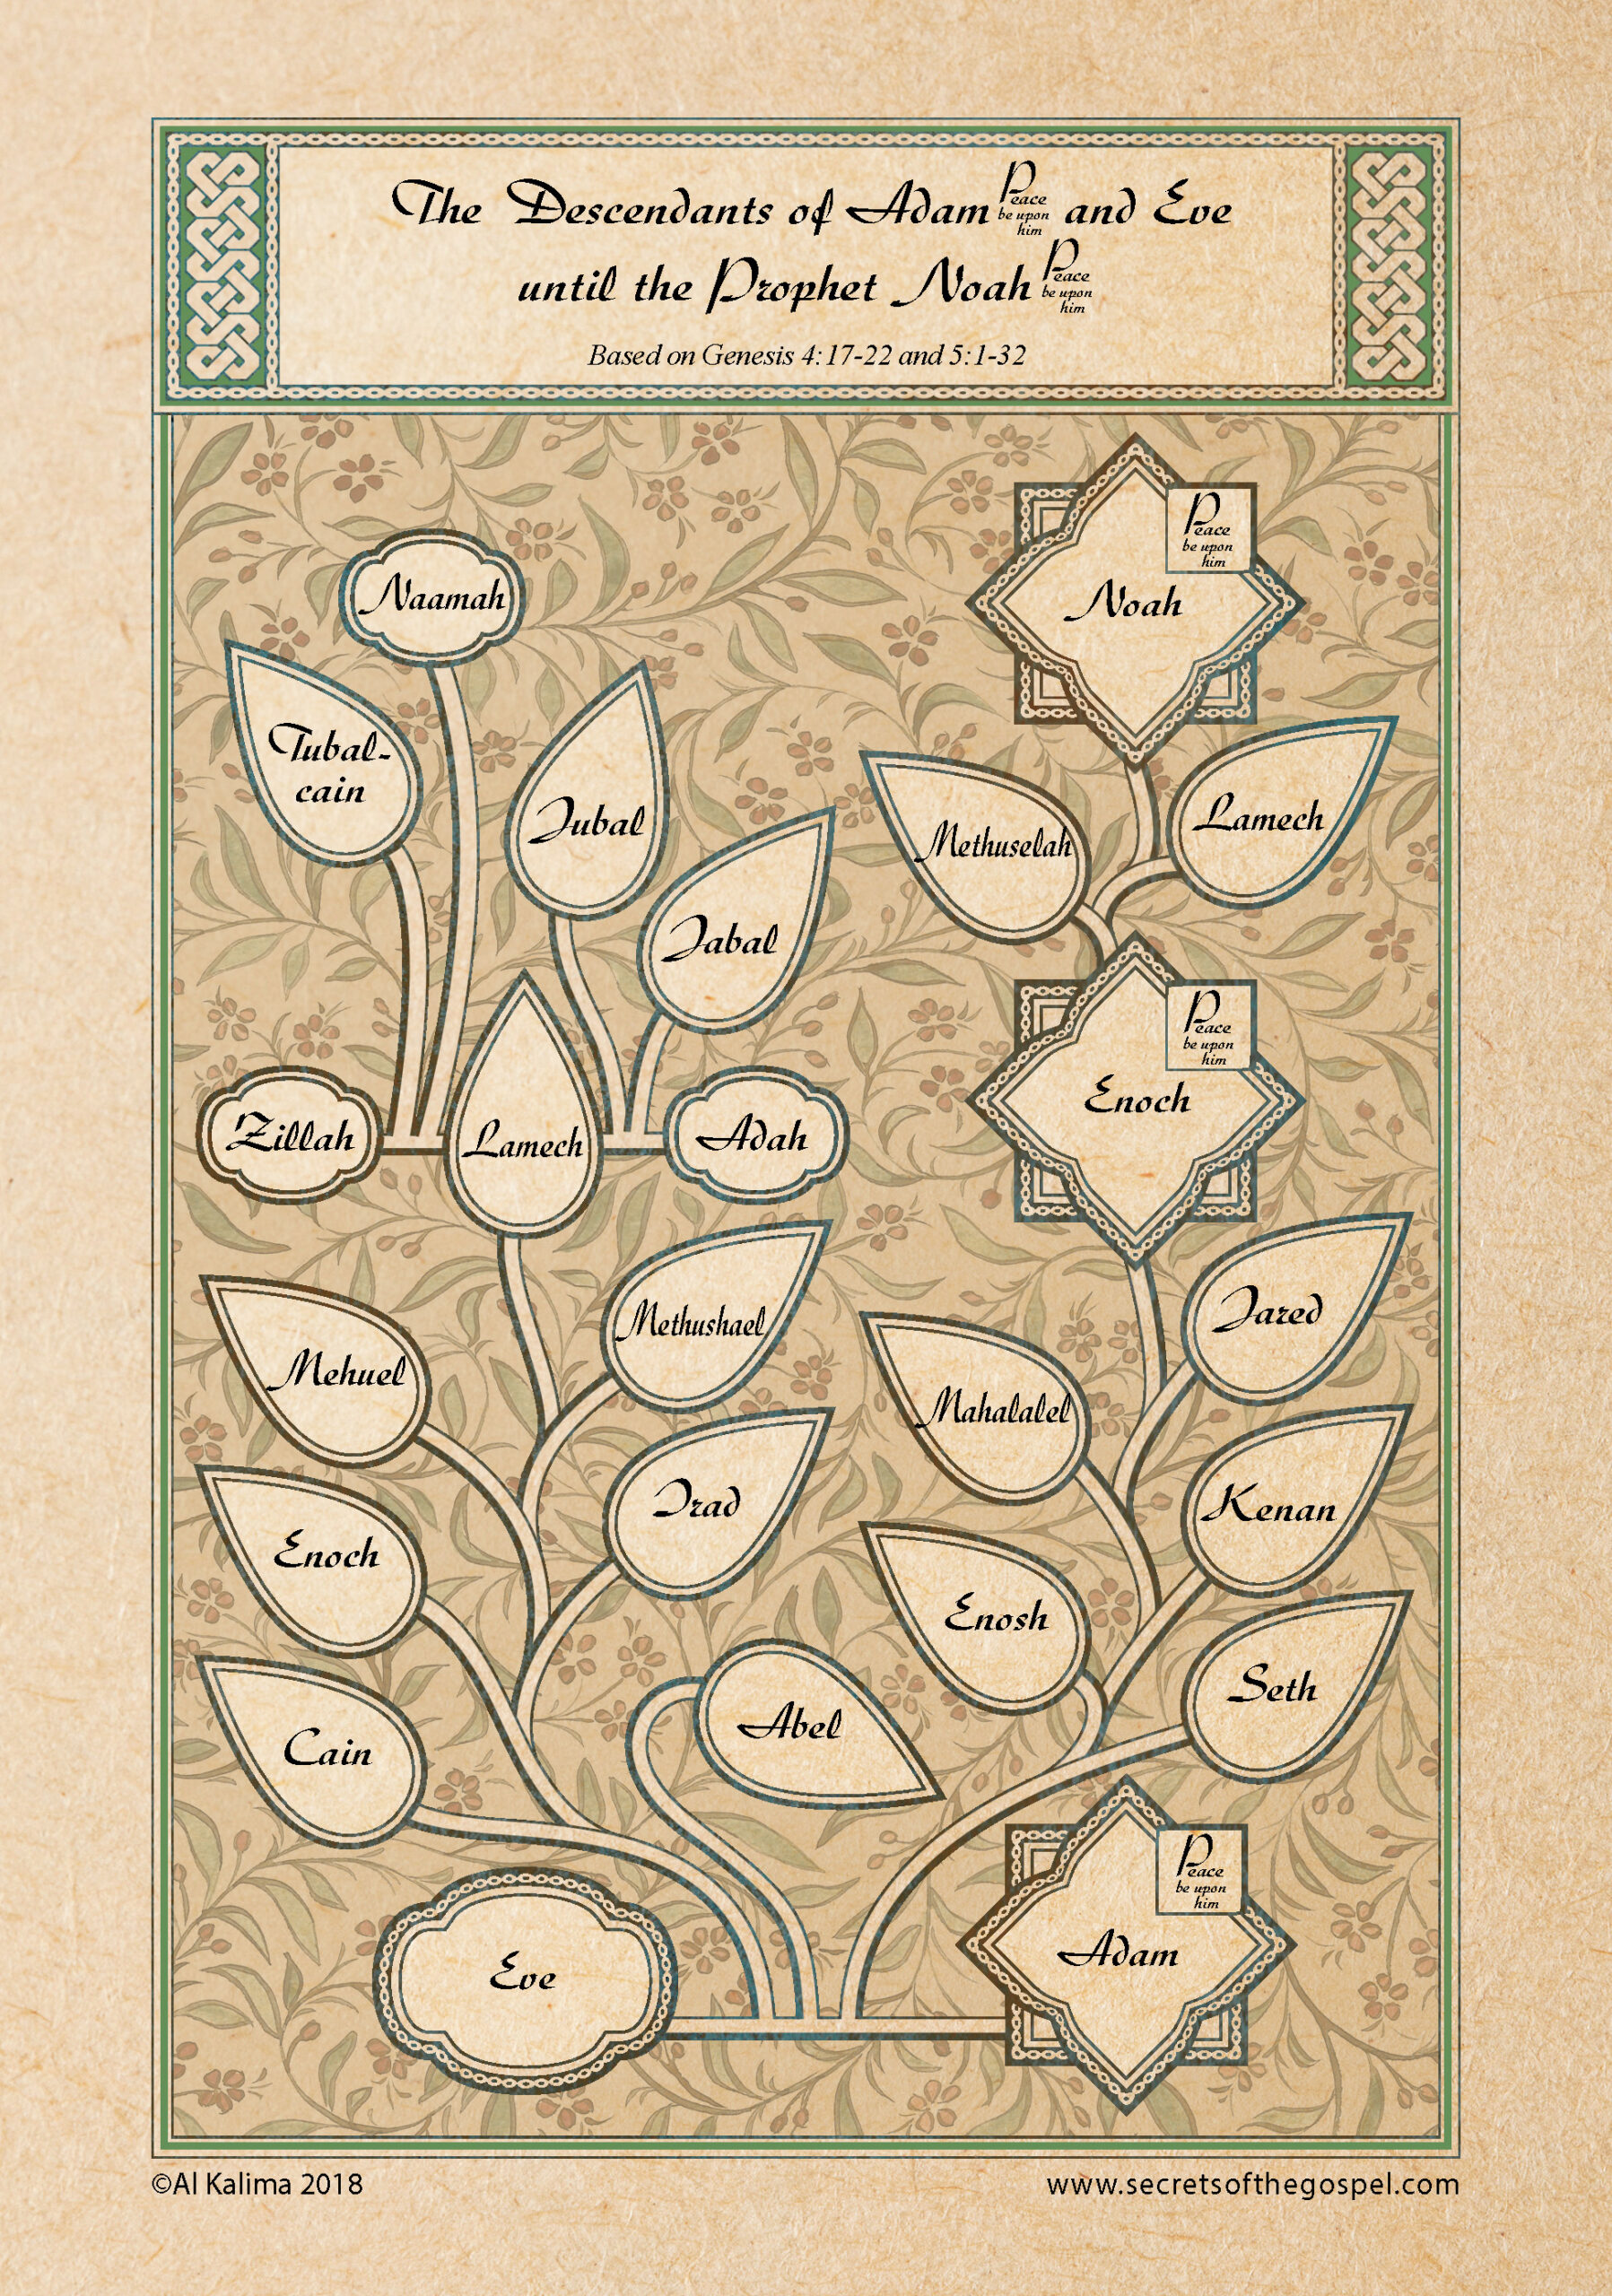 The Descendants of Adam Peace be upon him and Eve
until the Prophet Noah Peace be upon him
Based on Genesis 4:17-22 and 5:1-32
Noah
Peace
be upon
him
Naamah
Tubal-
cain
Jubal
Jabal
Methuselah
Lamech
Enoch
Peace
be upon
him
Zillah
Lamech
Adah
Mehuel
Methushael
Jared
Mahalalel
Enoch
Irad
Kenan
Enosh
Cain
Abel
Seth
Eve
Adam
Peace
be upon
him
©Al Kalima 2018
www.secretsofthegospel.com